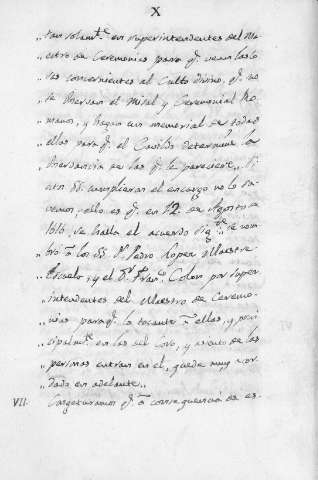 X
„tan solam.te en superintendentes del Ma-
„estro de Ceremonias para q.e vean las co
„sas concernientes al Culto divino, q.e no
„se obervan el Misal y Ceremonial Ro-
„mano, y hagan un memorial de todas
„ellas para q.e el Cavildo determine la
„obervancia de las q.e le pareciere„ Si
estos SS. cumplieron el encargo no lo sa-
vemos; ello es q.e en 12 de Agosto de
1616, se halla el acuerdo sig.te „Se nom
„bró á los SS. D.n Pedro Lopez Maestre-
„Escuela, y el D.r Fran.co Colon por super
„intendentes del Maestro de Ceremo-
„nias para q.e lo tocante á ellas, y prin
„cipalm.te en las del Coro, y asiento de las
„personas entran en el, quede muy acor-
„dado en adelante„
VII. Congeturamos q.e á consequencia de es-